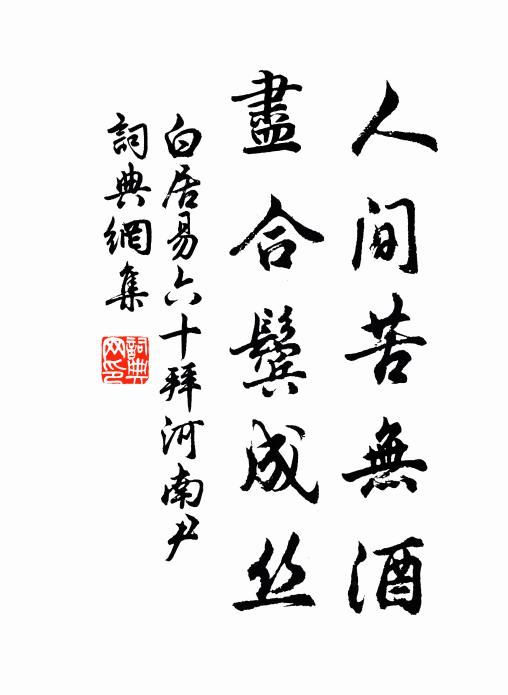 人間苦無酒
盡合鬢成丝
白居易六十拜河南尹
詞典網集
詞典网印